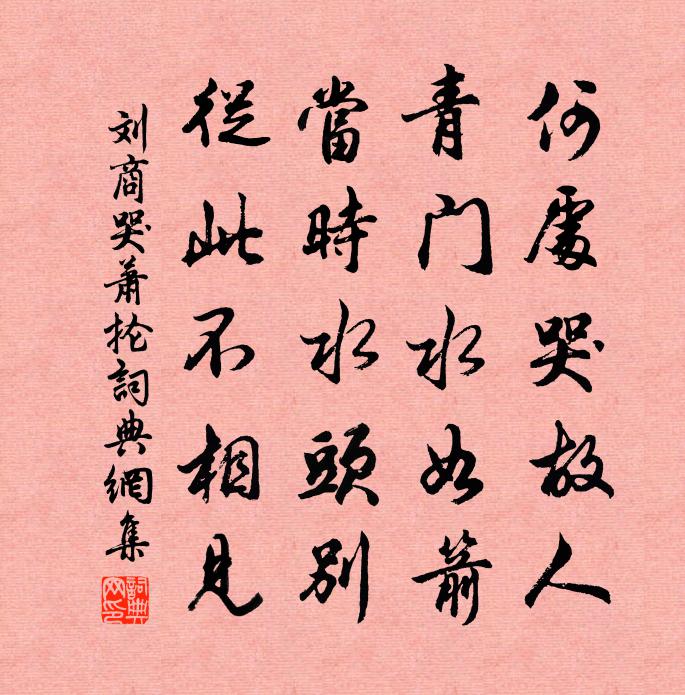 何處哭故人
青門水如箭
當時水頭別
從此不相見
刘商哭萧抡詞典網集
詞典網印